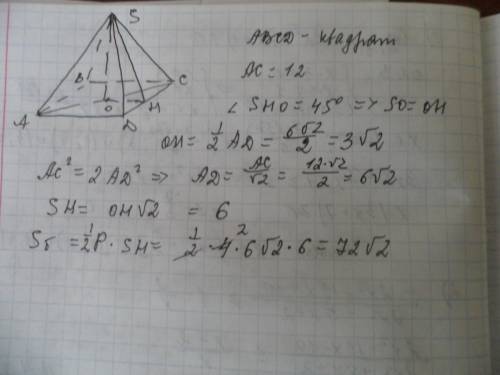 S
B
C
O
H
A
D
ABCD - квадрат
AC = 12
∠ SHO = 45° => SO = OH
OH = 1/2 AD = 6√2/2 = 3√2
AC² = 2AD² => AD = AC/√2 = 12·√2/2 = 6√2
SH = OH√2 = 6
Sб = 1/2 P · SH = 1/2 · 4² · 6√2 · 6 = 72√2